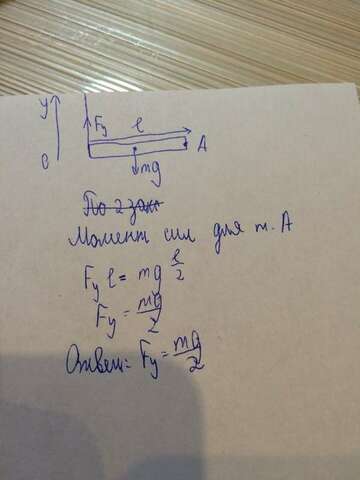 y
Fy l
A
0
mg
По 2 зак
Момент сил для т. А
Fy l = mg l/2
Fy = mg/2
Ответ: Fy = mg/2